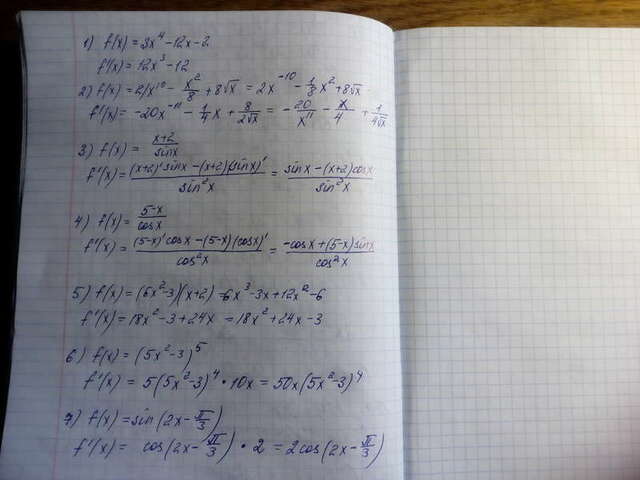 1) f(x) = 3x⁴ - 12x - 2
f'(x) = 12x³ - 12
2) f(x) = 2/x¹⁰ - x²/8 + 8√x = 2x⁻¹⁰ - 1/8 x² + 8√x
f'(x) = -20x⁻¹¹ - 1/4 x + 8/(2√x) = -20/x¹¹ - x/4 + 1/(4√x)
3) f(x) = (x+2)/sinx
f'(x) = ((x+2)' sinx - (x+2)(sinx)')/sin²x = (sinx - (x+2)cosx)/sin²x
4) f(x) = (5-x)/cosx
f'(x) = ((5-x)' cosx - (5-x)(cosx)')/cos²x = (-cosx + (5-x)sinx)/cos²x
5) f(x) = (6x²-3)(x+2) = 6x³ - 3x + 12x² - 6
f'(x) = 18x² - 3 + 24x = 18x² + 24x - 3
6) f(x) = (5x² - 3)⁵
f'(x) = 5(5x² - 3)⁴ • 10x = 50x(5x² - 3)⁴
7) f(x) = sin(2x - π/3)
f'(x) = cos(2x - π/3) • 2 = 2cos(2x - π/3)